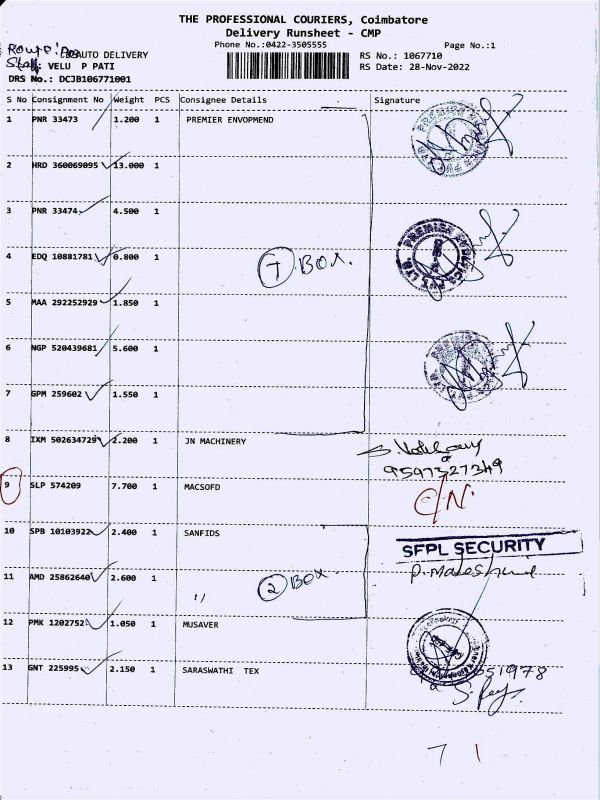 THE PROFESSIONAL COURIERS, Coimbatore
Delivery Runsheet - CMP
Phone No.:0422-3505555
Page No.:1
AUTO DELIVERY
RS No.: 1067710
: VELU P PATI
RS Date: 28-Nov-2022
DRS No.: DCJB106771001
S No Consignment No Weight PCS Consignee Details Signature
1 PNR 33473 1.200 1 PREMIER ENVOPMEND
2 HRD 360069095 13.000 1
3 PNR 33474 4.500 1
4 EDQ 10881781 0.800 1
7 BOX.
5 MAA 292252929 1.850 1
6 NGP 520439681 5.600 1
7 GPM 259602 1.550 1
8 IXM 502634729 2.200 1 JN MACHINERY
9597327349
9 SLP 574209 7.700 1 MACSOFD
C/N.
10 SPB 10103922 2.400 1 SANFIDS
SFPL SECURITY
11 AMD 25862640 2.600 1
2 BOX.
12 PMK 1202752 1.050 1 MUSAVER
13 GNT 225995 2.150 1 SARASWATHI TEX
7 1